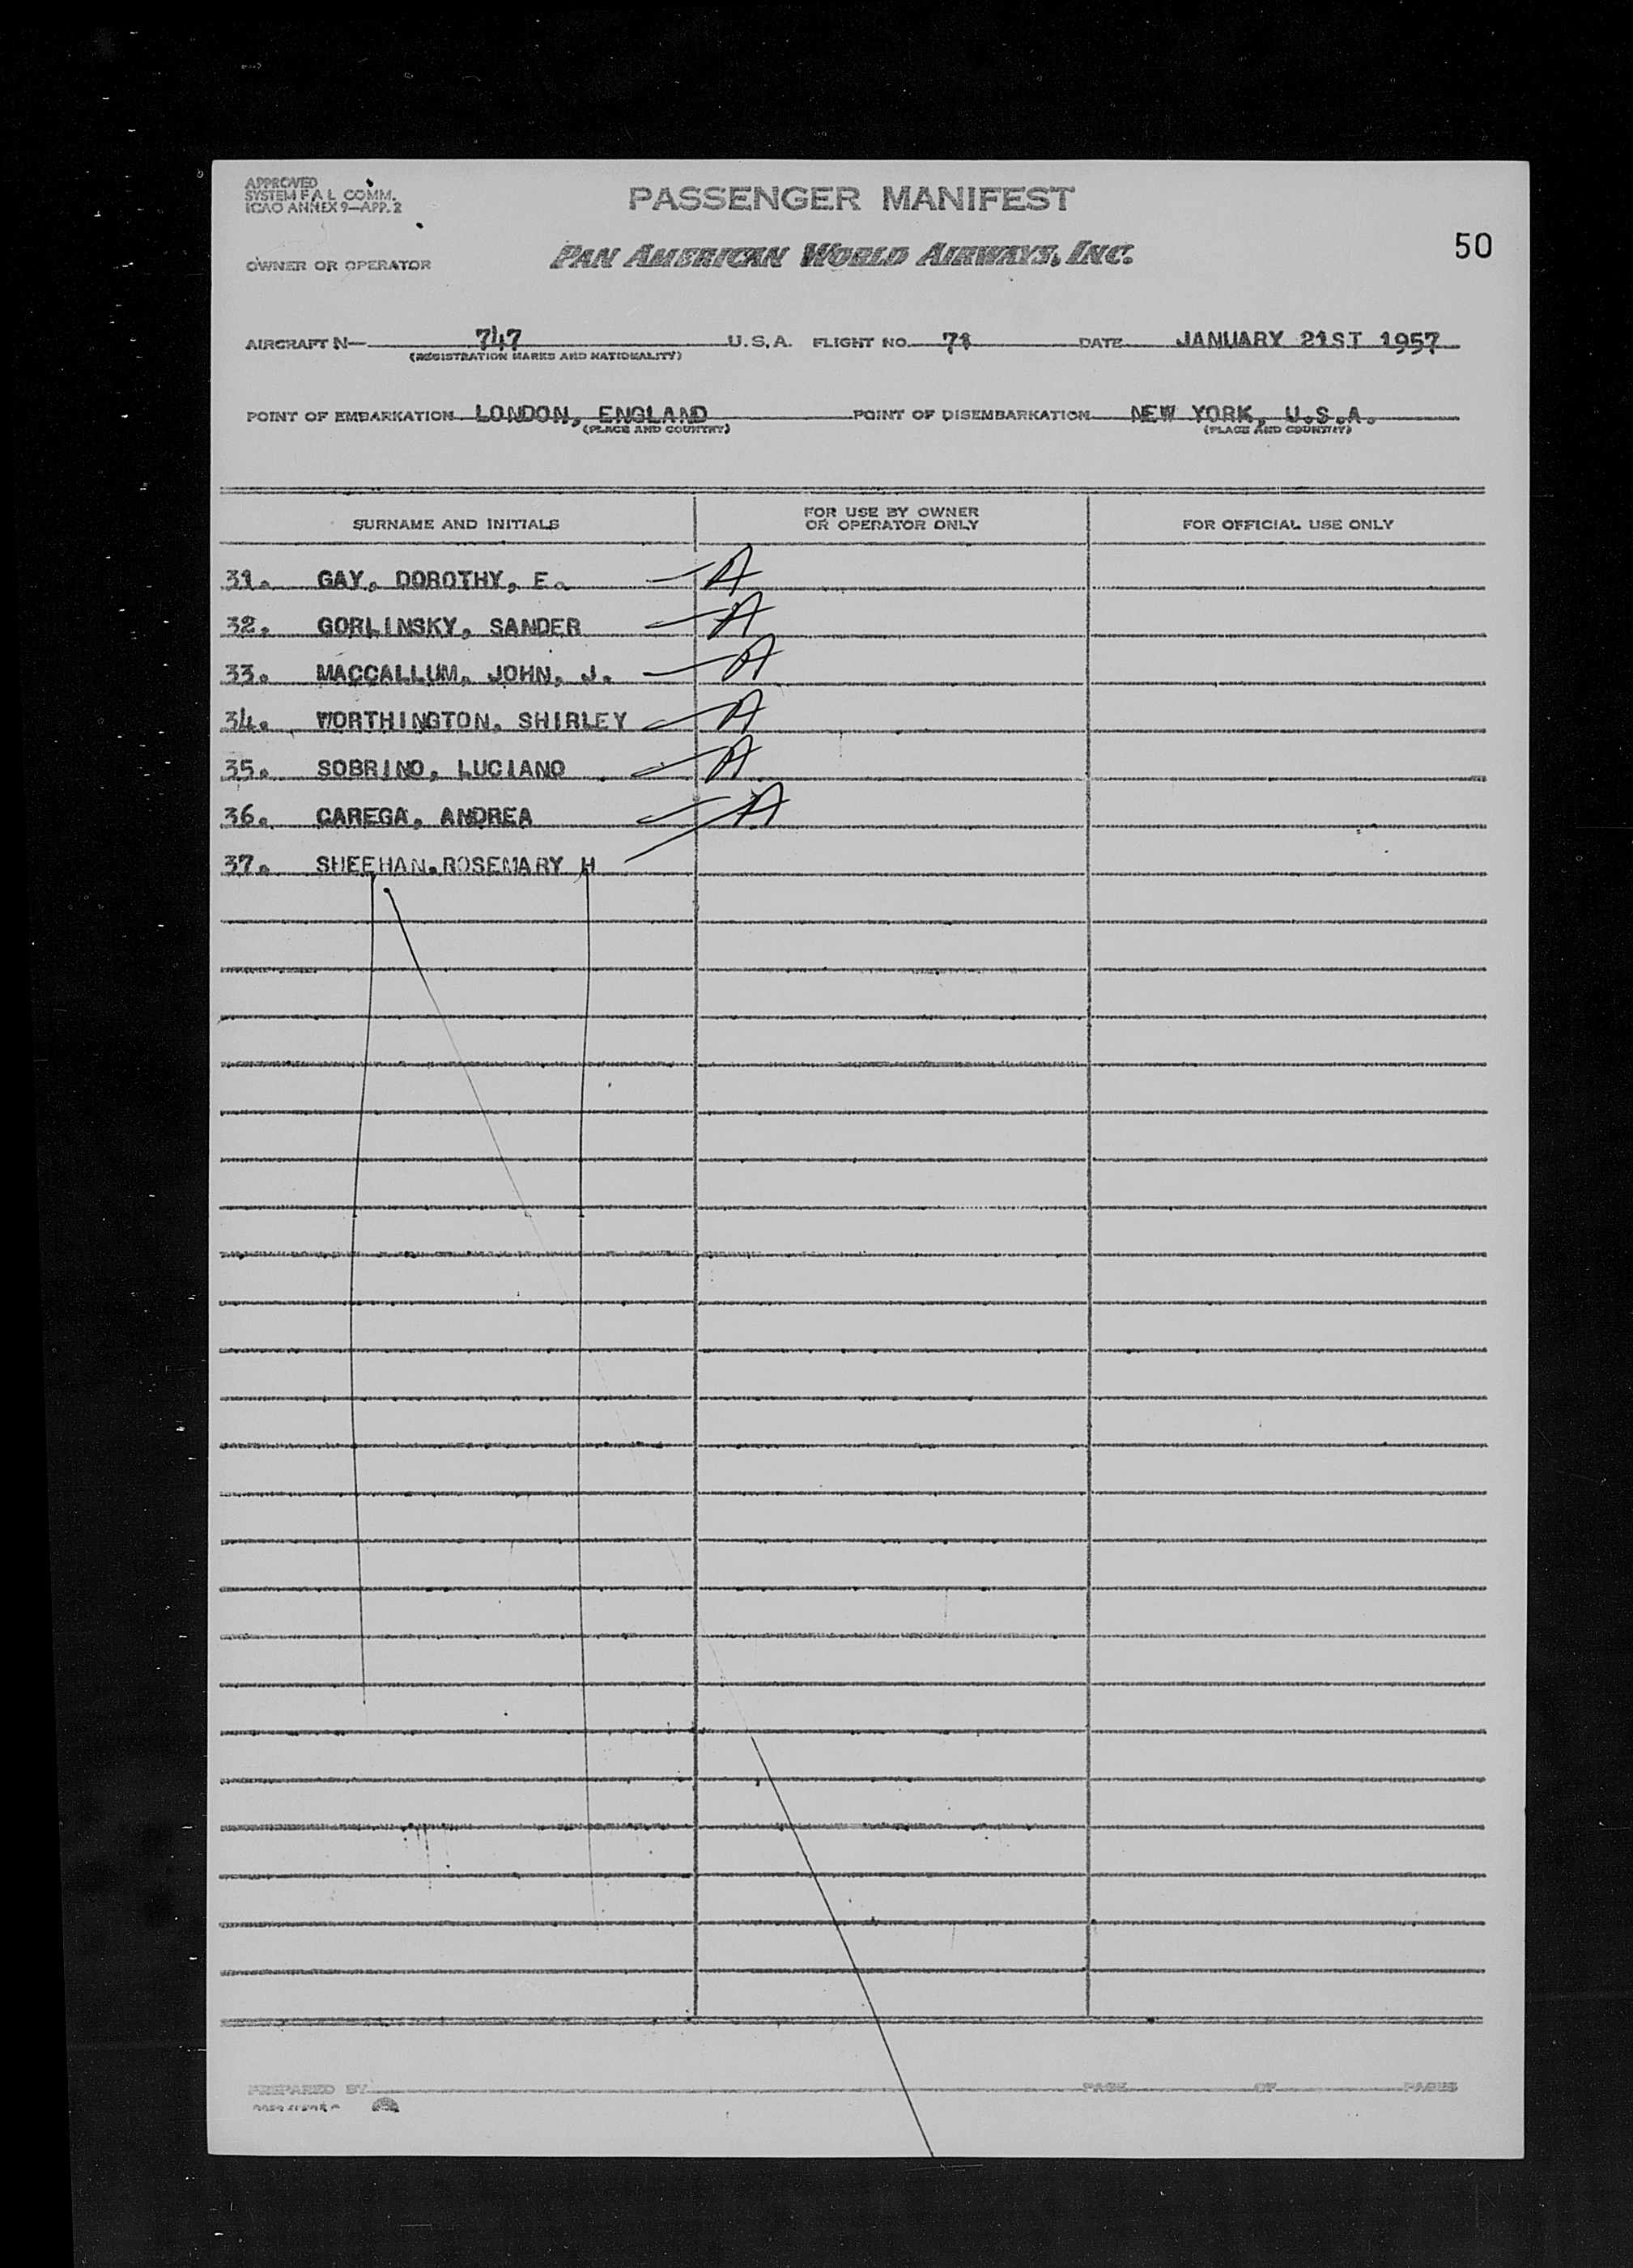 APPROVED
SYSTEM F A L COMM.
ICAO ANNEX 9—APP. 2
PASSENGER MANIFEST
50
OWNER OR OPERATOR
PAN AMERICAN WORLD AIRWAYS, INC.
AIRCRAFT N— 747 U.S.A. FLIGHT NO. DATE JANUARY 21ST 1957
(REGISTRATION MARKS AND NATIONALITY)
POINT OF EMBARKATION LONDON, ENGLAND POINT OF DISEMBARKATION NEW YORK, U.S.A.
(PLACE AND COUNTRY) (PLACE AND COUNTRY)
SURNAME AND INITIALS FOR USE BY OWNER OR OPERATOR ONLY FOR OFFICIAL USE ONLY
31. GAY, DOROTHY, E. A
32. GORLINSKY, SANDER A
33. MACCALLUM, JOHN, J. A
34. WORTHINGTON, SHIRLEY A
35. SOBRINO, LUCIANO A
36. CAREGA, ANDREA A
37. SHEEHAN.ROSEMARY H
PREPARED BY PAGE OF PAGES